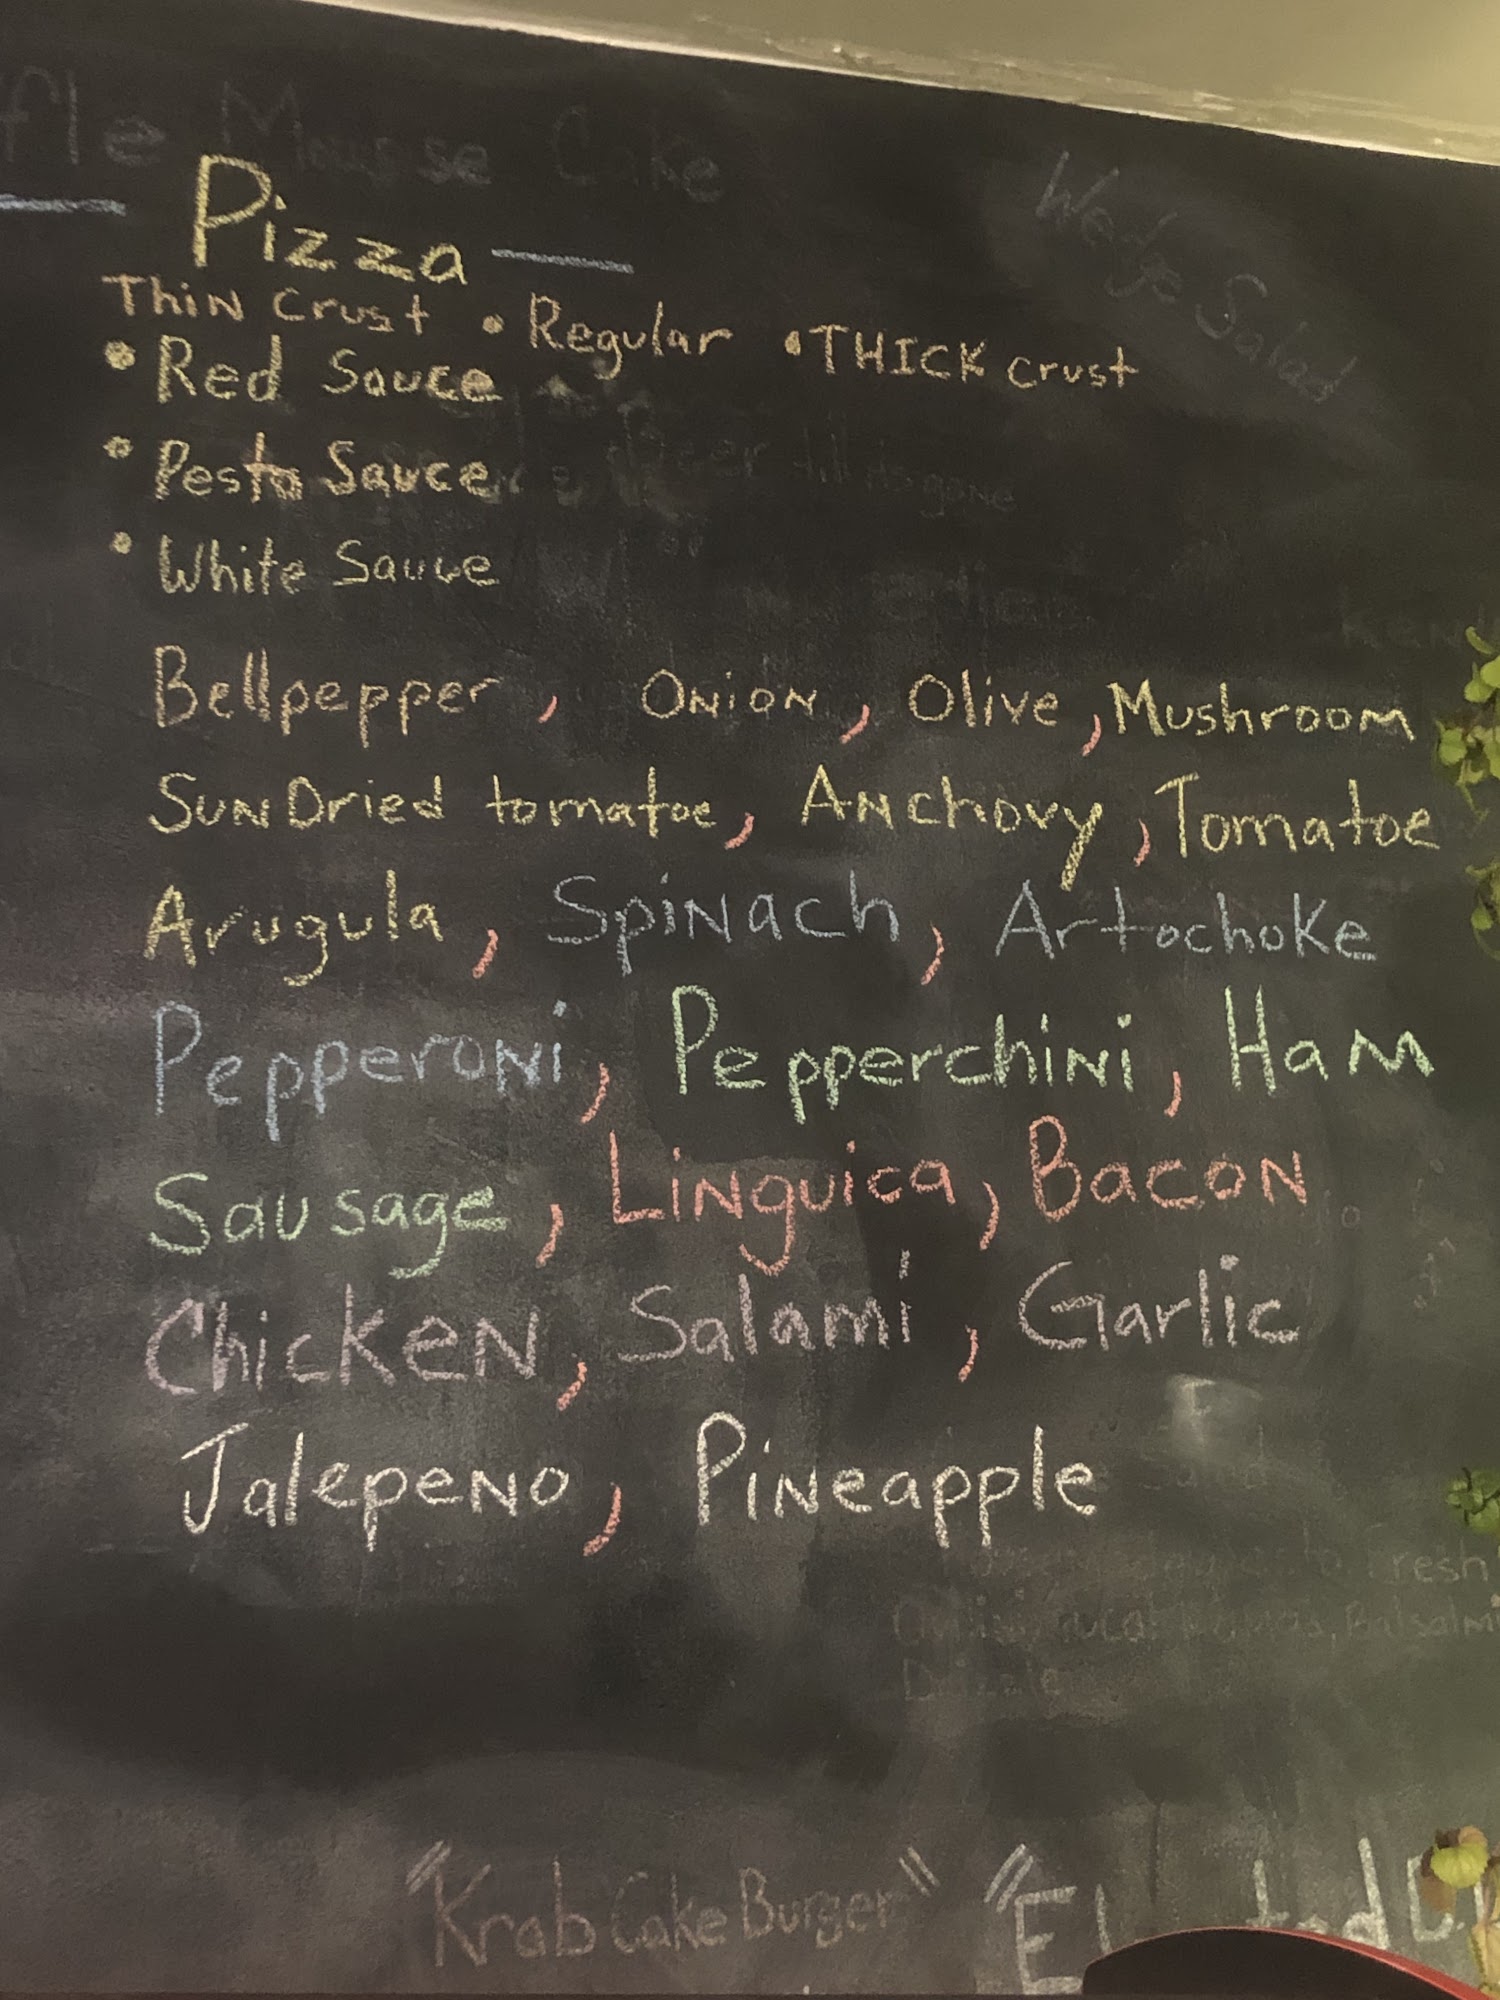 Mousse Cake
Wedge Salad
Pizza
THiN Crust • Regular • THICK crust
• Red Sauce
• Pesto Sauce
till its gone
• White Sauce
Bellpepper, ONiON, Olive, Mushroom
SUNDried tomatoe, ANchovy, Tomatoe
Arugula, SpiNach, Artochoke
PepperoNi, PepperchiNi, HaM
Sausage, LiNguica, BacoN
ChickeN, Salami, Garlic
JalepeNo, PiNeapple
Fresh
Drizzle
"Krab Cake Burger"